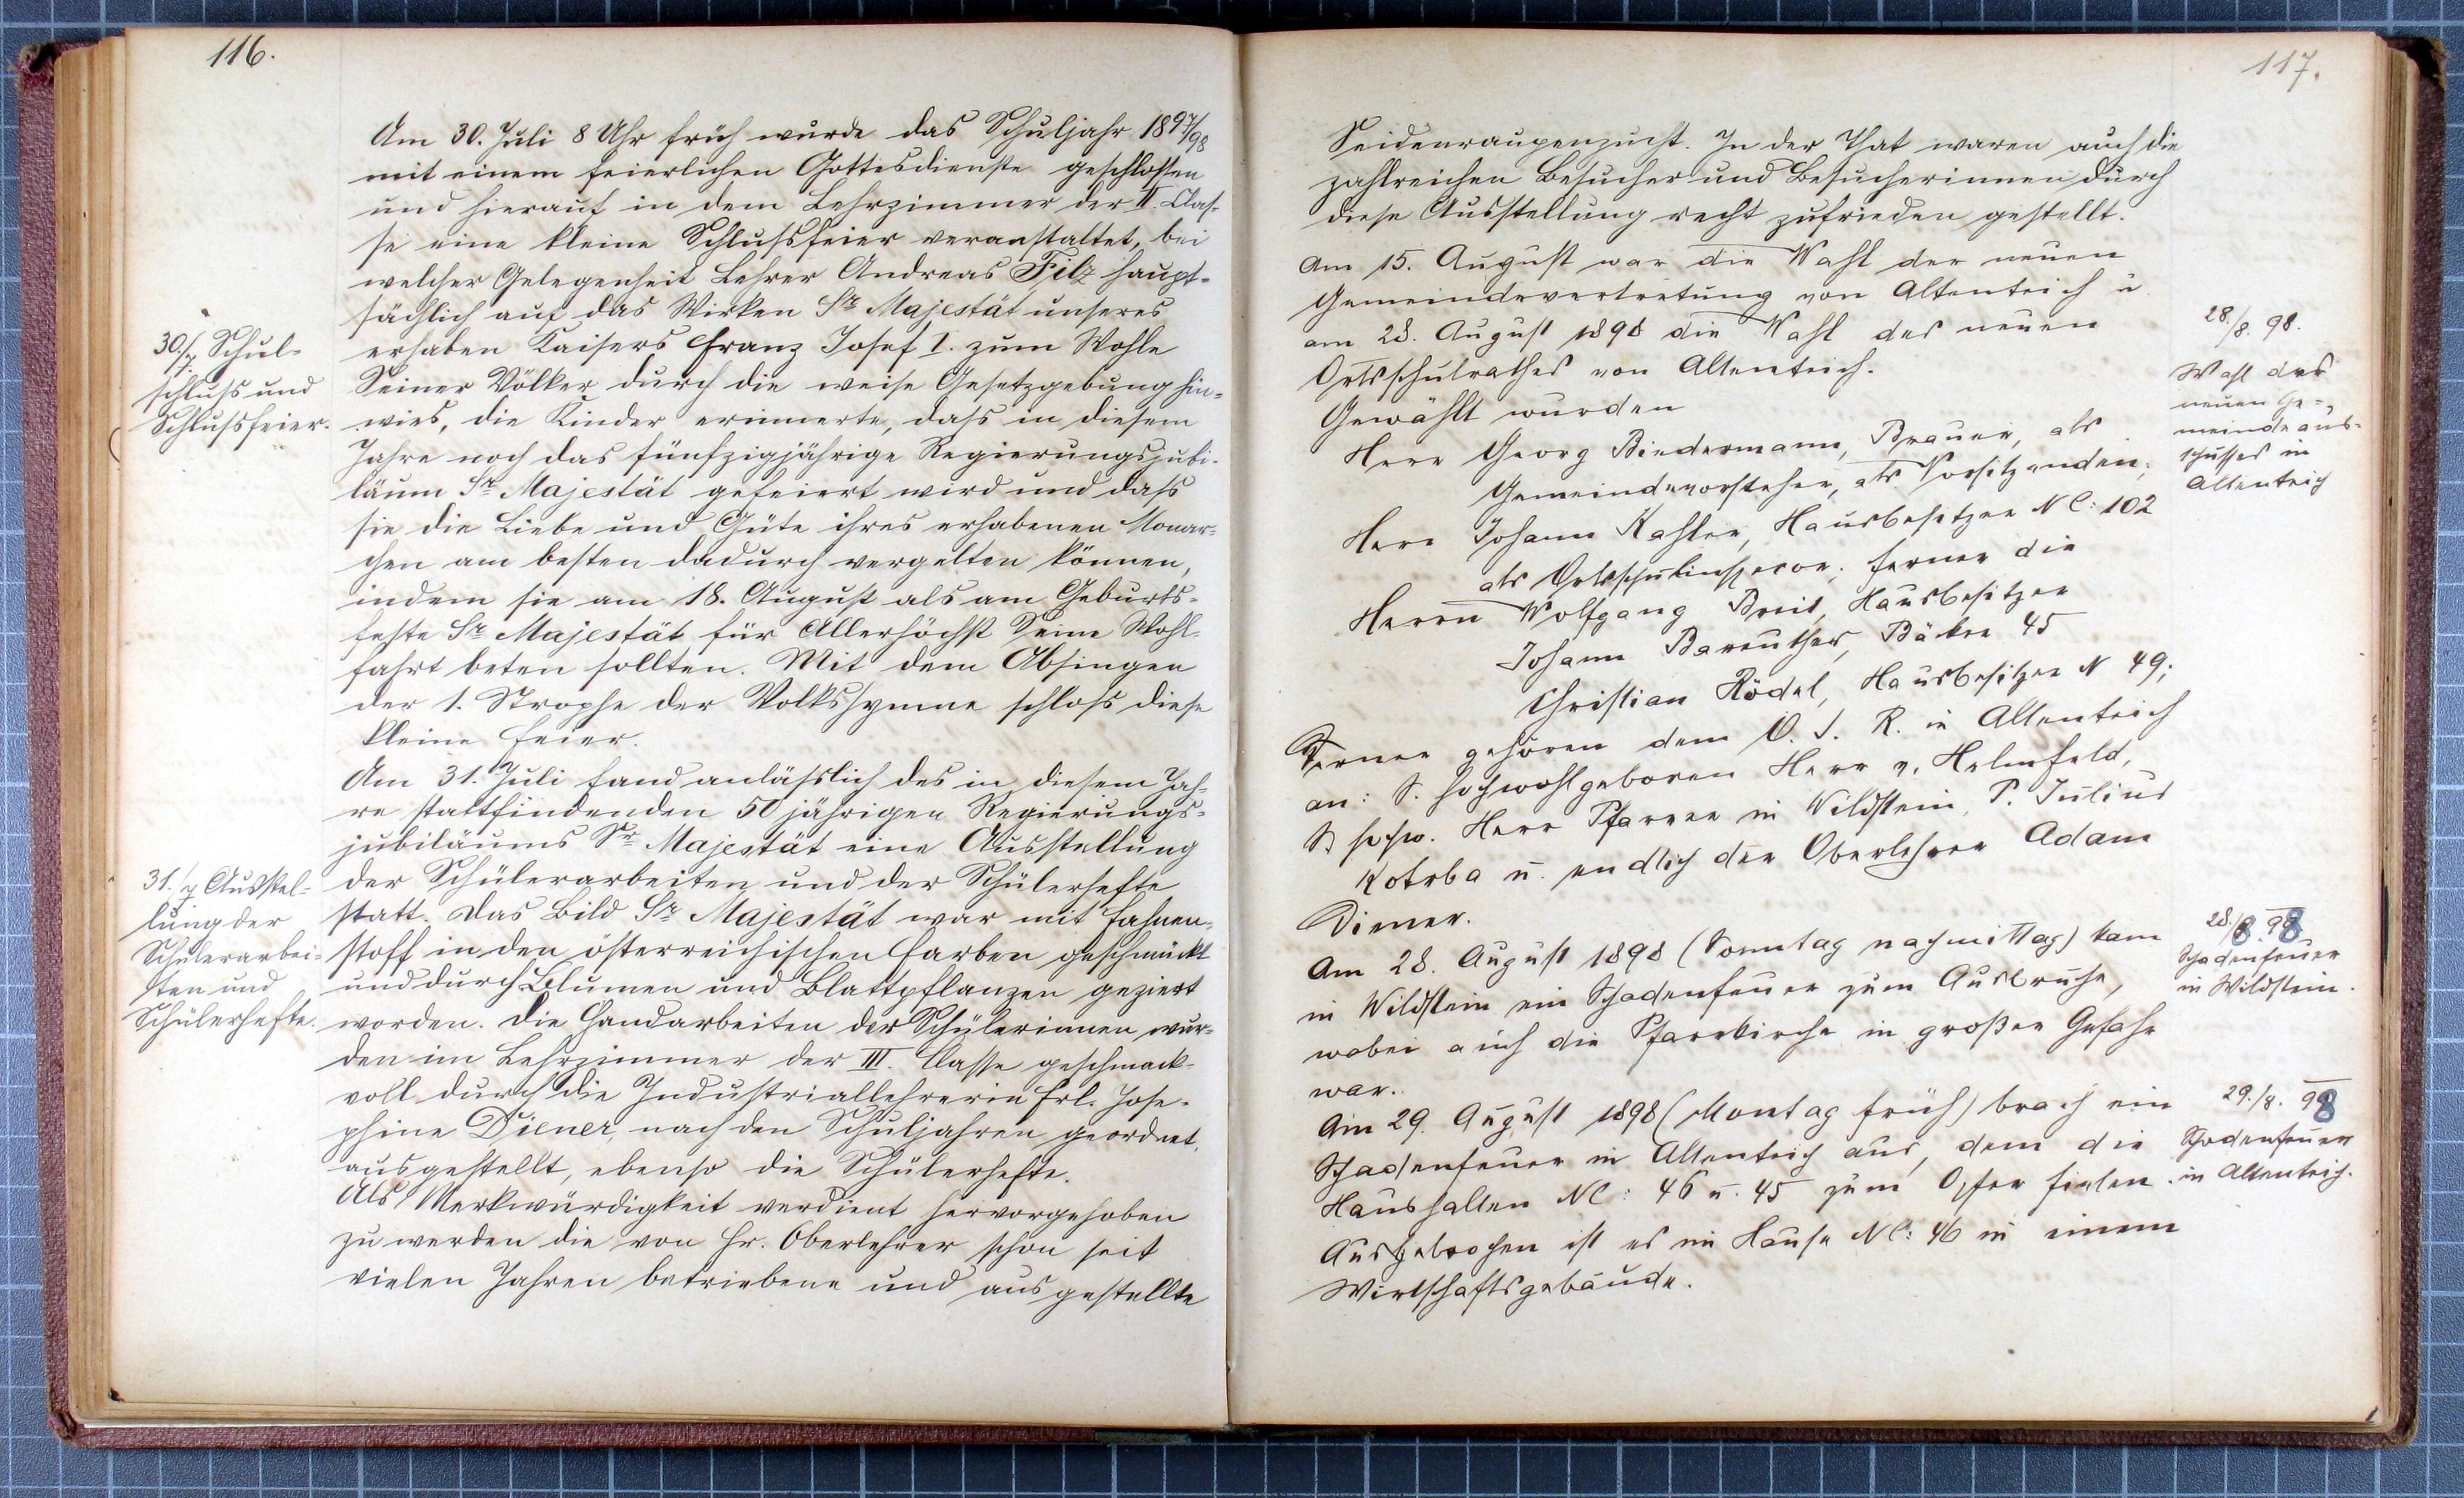 116.
Am 30. Juli 8 Uhr früh wurde das Schuljahr 1897/98
mit einem feierlichen Gottesdienste geschlossen
und hierauf in dem Lehrzimmer der II. Clas-
se eine kleine Schlussfeier veranstaltet, bei
welcher Gelegenheit Lehrer Andreas Filz haupt-
sächlich auf das Wirken Sr. Majestät unseres
erhaben Kaisers Franz Josef I. zum Wohle
Seiner Völker durch die weise Gesetzgebung hin-
wies, die Kinder erinnerte, dass in diesem
Jahre noch das fünfzigjährige Regierungsjubi-
läum Sr. Majestät gefeiert wird und dass
sie die Liebe und Güte ihres erhabenen Monar-
chen am besten dadurch vergelten können,
indem sie am 18. August als am Geburts-
feste Sr. Majestät für Allerhöchst Seine Wohl-
fahrt beten sollten. Mit dem Absingen
der 1. Strophe der Volkshymne schloss diese
kleine Feier.
30./7. Schul-
schluss und
Schlussfeier.
Am 31. Juli fand anlässlich des in diesem Jah-
re stattfindenden 50 jährigen Regierungs-
jubiläums Sr. Majestät eine Ausstellung
der Schülerarbeiten und der Schülerhefte
statt. Das Bild Sr. Majestät war mit Fahnen-
stoff in den österreichischen Farben geschmückt
und durch Blumen und Blattpflanzen geziert
worden. Die Handarbeiten der Schülerinnen wur-
den im Lehrzimmer der III. Classe geschmack-
voll durch die Industriallehrerin Frl. Jose-
phine Diener, nach den Schuljahren geordnet,
ausgestellt, ebenso die Schülerhefte.
Als Merkwürdigkeit verdient hervorgehoben
zu werden die von Hr. Oberlehrer schon seit
vielen Jahren betriebene und ausgestellte
31./7 Ausstel-
lung der
Schülerarbei-
ten und
Schülerhefte.
117.
Seidenraupenzucht. In der That waren auch die
zahlreichen Besucher und Besucherinnen durch
diese Ausstellung recht zufrieden gestellt.
Am 15. August war die Wahl der neuen
Gemeindevertretung von Altenteich u
am 28. August 1898 die Wahl des neuen
Ortsschulrathes von Altenteich.
Gewählt wurden
Herr Georg Biedermann, Brauer, als
Gemeindevorsteher, als Vorsitzenden;
Herr Johann Kahler, Hausbesitzer NC: 102
als Ortsschulinspecor; ferner die
Herrn Wolfgang Breit, Hausbesitzer
Johann Bareuther, Bäker 45
Christian Rödel, Hausbesitzer N 49;
Ferner gehören dem O. S. R. in Altenteich
an: S. Hochwohlgeboren Herr v. Helmfeld,
S. hochw. Herr Pfarrer in Wildstein, P. Julius
Kotrba u. endlich der Oberlehrer Adam
Diener.
28./8. 98.
Wahl des
neuen Ge-
meindeaus-
schusses in
Altenteich
Am 28. August 1898 (Sonntag nachmittag) kam
in Wildstein ein Schadenfeuer zum Ausbruche,
wobei auch die Pfarrkirche in großer Gefahr
war.
28./8. 98
Schadenfeuer
in Wildstein.
Am 29. August 1898 (Montag früh) brach ein
Schadenfeuer in Altenteich aus, dem die
Haushalten NC: 46 u. 45 zum Opfer fielen.
Ausgebrochen ist es im Hause NC: 46 in einem
Wirtschaftsgebäude.
29./8. 98
Schadenfeuer
in Altenteich.